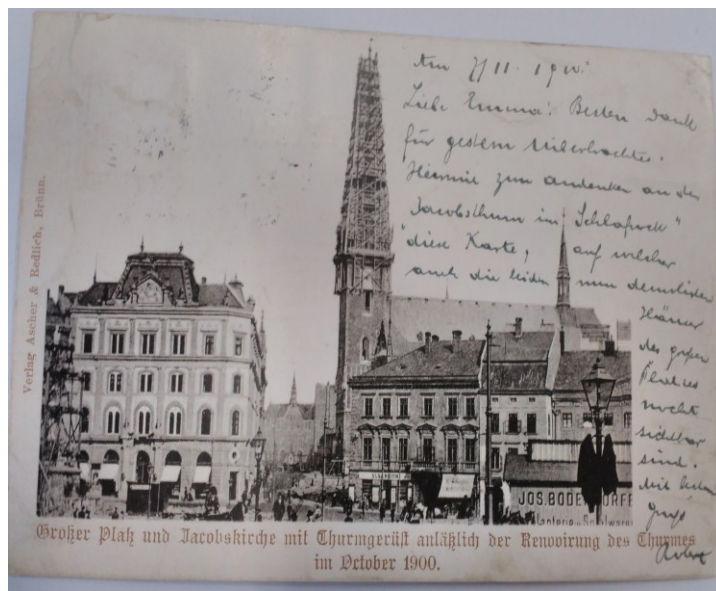 Am 7/11. 1900.
Liebe Emma! Besten Dank
für gestern
Hiermit zum andenken an den
Jacobsthurm im „Schlafrock"
diese Karte, auf welcher
auch die beiden nun demolirten
Häuser
des großen
Platzes
nicht
sichtbar
sind.
Mit besten
Gruß
Verlag Ascher & Redlich, Brünn.
JOS. BODE DORFF
Großer Platz und Jacobskirche mit Thurmgerüst anläßlich der Renovirung des Thurmes
im October 1900.